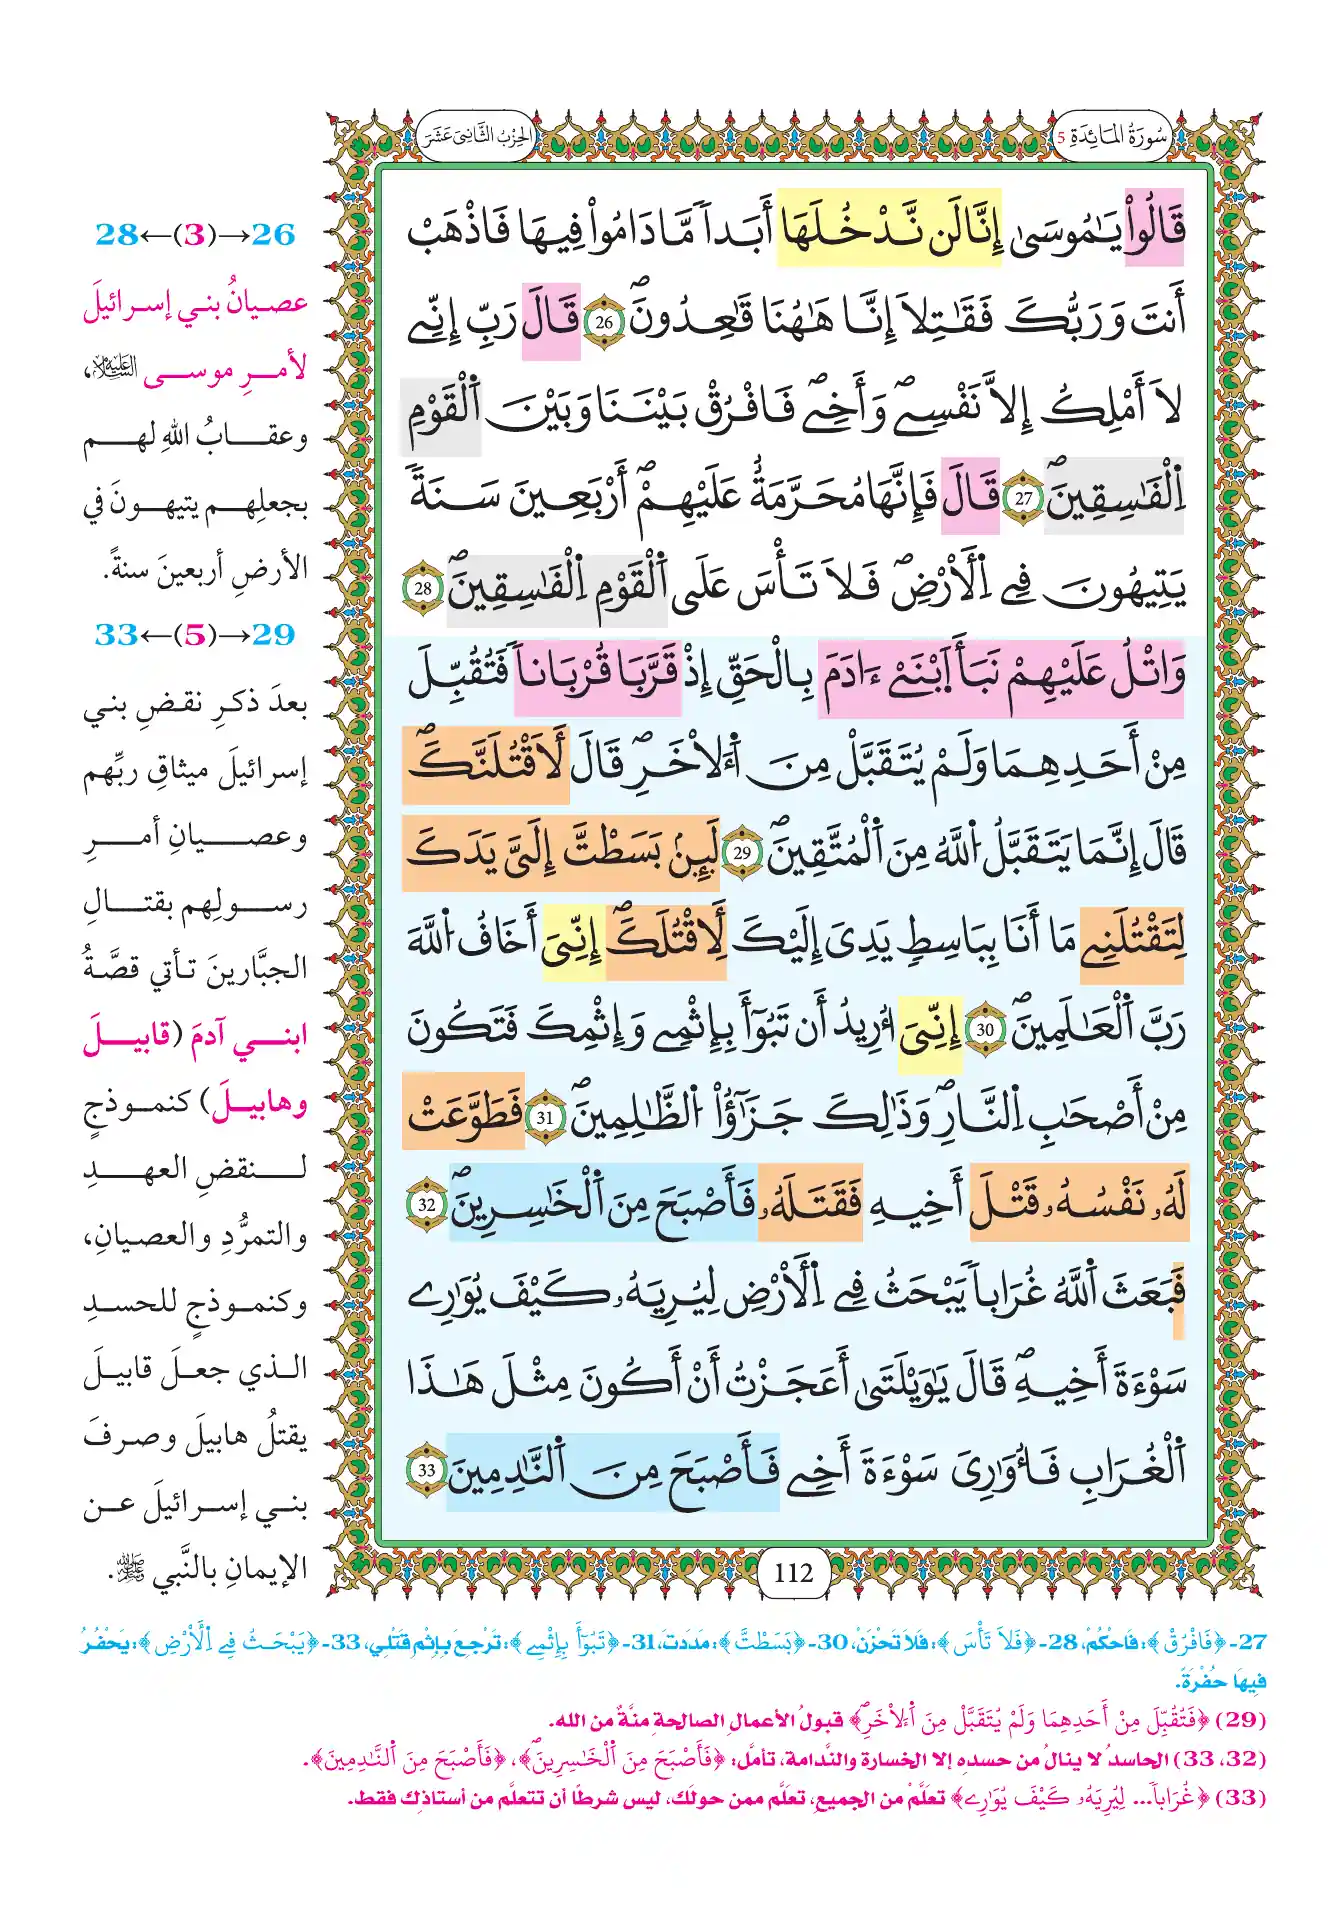 سُورَةُ المَائِدَةِ 5
الحِزْبُ الثَّانِيَ عَشَرَ
قَالُواْ يَٰمُوسَىٰ إِنَّا لَن نَّدْخُلَهَا أَبَداٗ مَّا دَامُواْ فِيهَا فَاذْهَبْ
أَنتَ وَرَبُّكَ فَقَٰتِلَا إِنَّا هَٰهُنَا قَٰعِدُونَۖ 26 قَالَ رَبِّ إِنِّے
لَا أَمْلِكُ إِلَّا نَفْسِے وَأَخِےۖ فَافْرُقْ بَيْنَنَا وَبَيْنَ اَلْقَوْمِ
اِلْفَٰسِقِينَۖ 27 قَالَ فَإِنَّهَا مُحَرَّمَةٌ عَلَيْهِمْۖ أَرْبَعِينَ سَنَةٗ
يَتِيهُونَ فِے اِلَارْضِۖ فَلَا تَأْسَ عَلَى اَلْقَوْمِ اِلْفَٰسِقِينَۖ 28
وَاتْلُ عَلَيْهِمْ نَبَأَ اَبْنَےْ ءَادَمَ بِالْحَقِّ إِذْ قَرَّبَا قُرْبَاناٗ فَتُقُبِّلَ
مِنْ أَحَدِهِمَا وَلَمْ يُتَقَبَّلْ مِنَ اَلَاخَرِۖ قَالَ لَأَقْتُلَنَّكَۖ
قَالَ إِنَّمَا يَتَقَبَّلُ اُللَّهُ مِنَ اَلْمُتَّقِينَۖ 29 لَئِنۢ بَسَطتَّ إِلَيَّ يَدَكَ
لِتَقْتُلَنِے مَا أَنَا بِبَاسِطٖ يَدِيَ إِلَيْكَ لِأَقْتُلَكَۖ إِنِّيَ أَخَافُ اُللَّهَ
رَبَّ اَلْعَٰلَمِينَۖ 30 إِنِّيَ أُرِيدُ أَن تَبُوٓأَ بِإِثْمِے وَإِثْمِكَ فَتَكُونَ
مِنْ أَصْحَٰبِ اِلنَّارِۖ وَذَٰلِكَ جَزَٰٓؤُاْ اُلظَّٰلِمِينَۖ 31 فَطَوَّعَتْ
لَهُۥ نَفْسُهُۥ قَتْلَ أَخِيهِ فَقَتَلَهُۥ فَأَصْبَحَ مِنَ اَلْخَٰسِرِينَۖ 32
فَبَعَثَ اَللَّهُ غُرَاباٗ يَبْحَثُ فِے اِلَارْضِ لِيُرِيَهُۥ كَيْفَ يُوَٰرِے
سَوْءَةَ أَخِيهِۖ قَالَ يَٰوَيْلَتَىٰ أَعَجَزْتُ أَنْ أَكُونَ مِثْلَ هَٰذَا
اَلْغُرَابِ فَأُوَٰرِيَ سَوْءَةَ أَخِے فَأَصْبَحَ مِنَ اَلنَّٰدِمِينَ 33
112
26→(3)←28
عصيانُ بني إسرائيلَ
لأمرِ موسى عليه السلام،
وعقابُ اللهِ لهم
بجعلِهم يتيهونَ في
الأرضِ أربعينَ سنةً.
29→(5)←33
بعدَ ذكرِ نقضِ بني
إسرائيلَ ميثاقِ ربِّهم
وعصيانِ أمرِ
رسولِهم بقتالِ
الجبَّارينَ تأتي قصَّةُ
ابني آدمَ (قابيلَ
وهابيلَ) كنموذجٍ
لنقضِ العهدِ
والتمرُّدِ والعصيانِ،
وكنموذجٍ للحسدِ
الذي جعلَ قابيلَ
يقتلُ هابيلَ وصرفَ
بني إسرائيلَ عن
الإيمانِ بالنَّبي ﷺ.
27-﴿فَافْرُقْ﴾: فَاحْكُمْ، 28-﴿فَلَا تَأْسَ﴾: فَلَا تَحْزَنْ، 30-﴿بَسَطتَّ﴾: مَدَدتَ، 31-﴿تَبُوٓأَ بِإِثْمِے﴾: تَرْجِعَ بِإِثْمِ قَتْلِي، 33-﴿يَبْحَثُ فِے اِلَارْضِ﴾: يَحْفُرُ
فِيهَا حُفْرَةً.
(29) ﴿فَتُقُبِّلَ مِنْ أَحَدِهِمَا وَلَمْ يُتَقَبَّلْ مِنَ اَلَاخَرِۖ﴾ قبولُ الأعمالِ الصالحةِ منَّةٌ من الله.
(32، 33) الحاسدُ لا ينالُ من حسدِه إلا الخسارة والنَّدامة، تأملْ: ﴿فَأَصْبَحَ مِنَ اَلْخَٰسِرِينَۖ﴾، ﴿فَأَصْبَحَ مِنَ اَلنَّٰدِمِينَ﴾.
(33) ﴿غُرَاباٗ... لِيُرِيَهُۥ كَيْفَ يُوَٰرِے﴾ تعلَّمْ من الجميعِ، تعلَّم ممن حولَك، ليس شرطًا أن تتعلَّم من أستاذِك فقط.